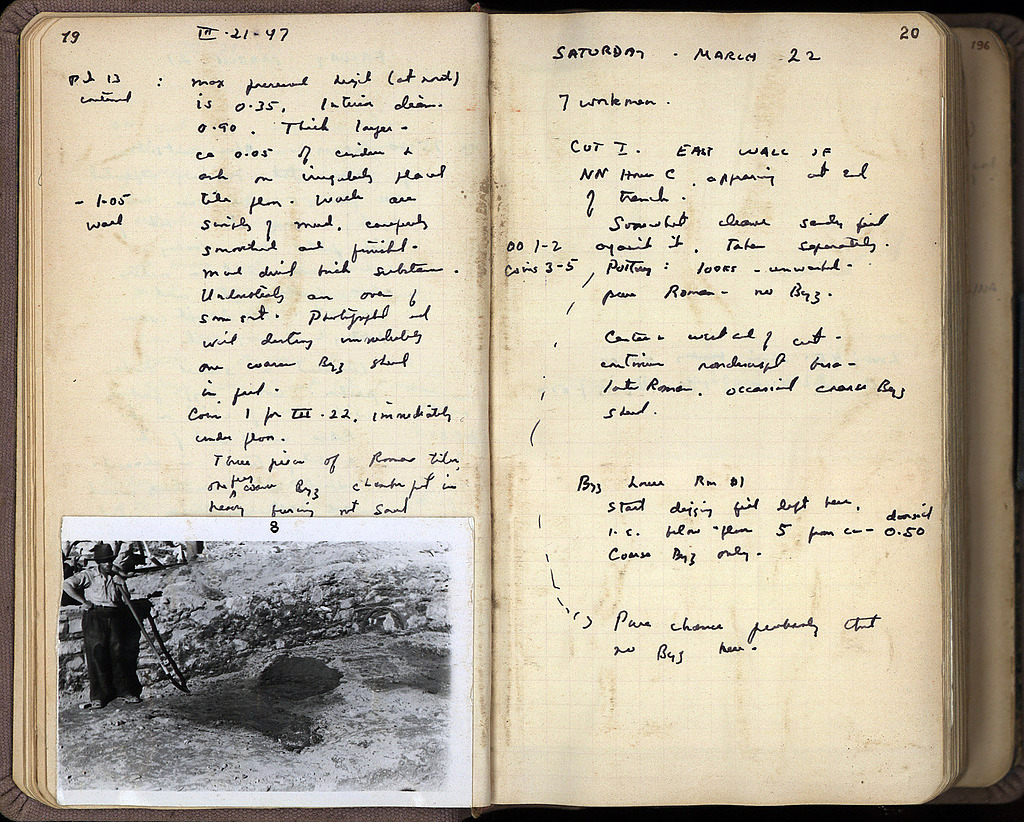 19
III-21-47
Pit 13 :
continued
max preserved height (at north)
is 0.35. Interior diam.
0.90. Thick layer -
ca 0.05 of cinders &
ash on irregularly placed
- 1.05
wall
tile floor. Walls are
simply of mud, carefully
smoothed and finished.
mud dried brick substance.
Undoubtedly an oven of
some sort. Photographed and
will destroy immediately
one coarse Byz sherd
in fill.
Coin 1 for III.22, immediately
under floor.
Three pieces of Roman tiles,
one coarse Byz in
heavy not
8
20
SATURDAY - MARCH 22
7 workmen.
CUT I. EAST WALL OF
NN House C. appearing at end
of trench.
Somewhat cleaner sandy fill
00 1-2
against it, taken separately.
coins 3-5
Pottery: looks - unwashed -
pure Roman - no Byz.
Center & west end of cut -
continue nondescript
late Roman, occasional coarse Byz
sherd.
Byz House Rm #1
Start digging fill left here,
i.e. below floor 5 from ca - 0.50
Coarse Byz only.
Pure chance probably that
no Byz here.
196